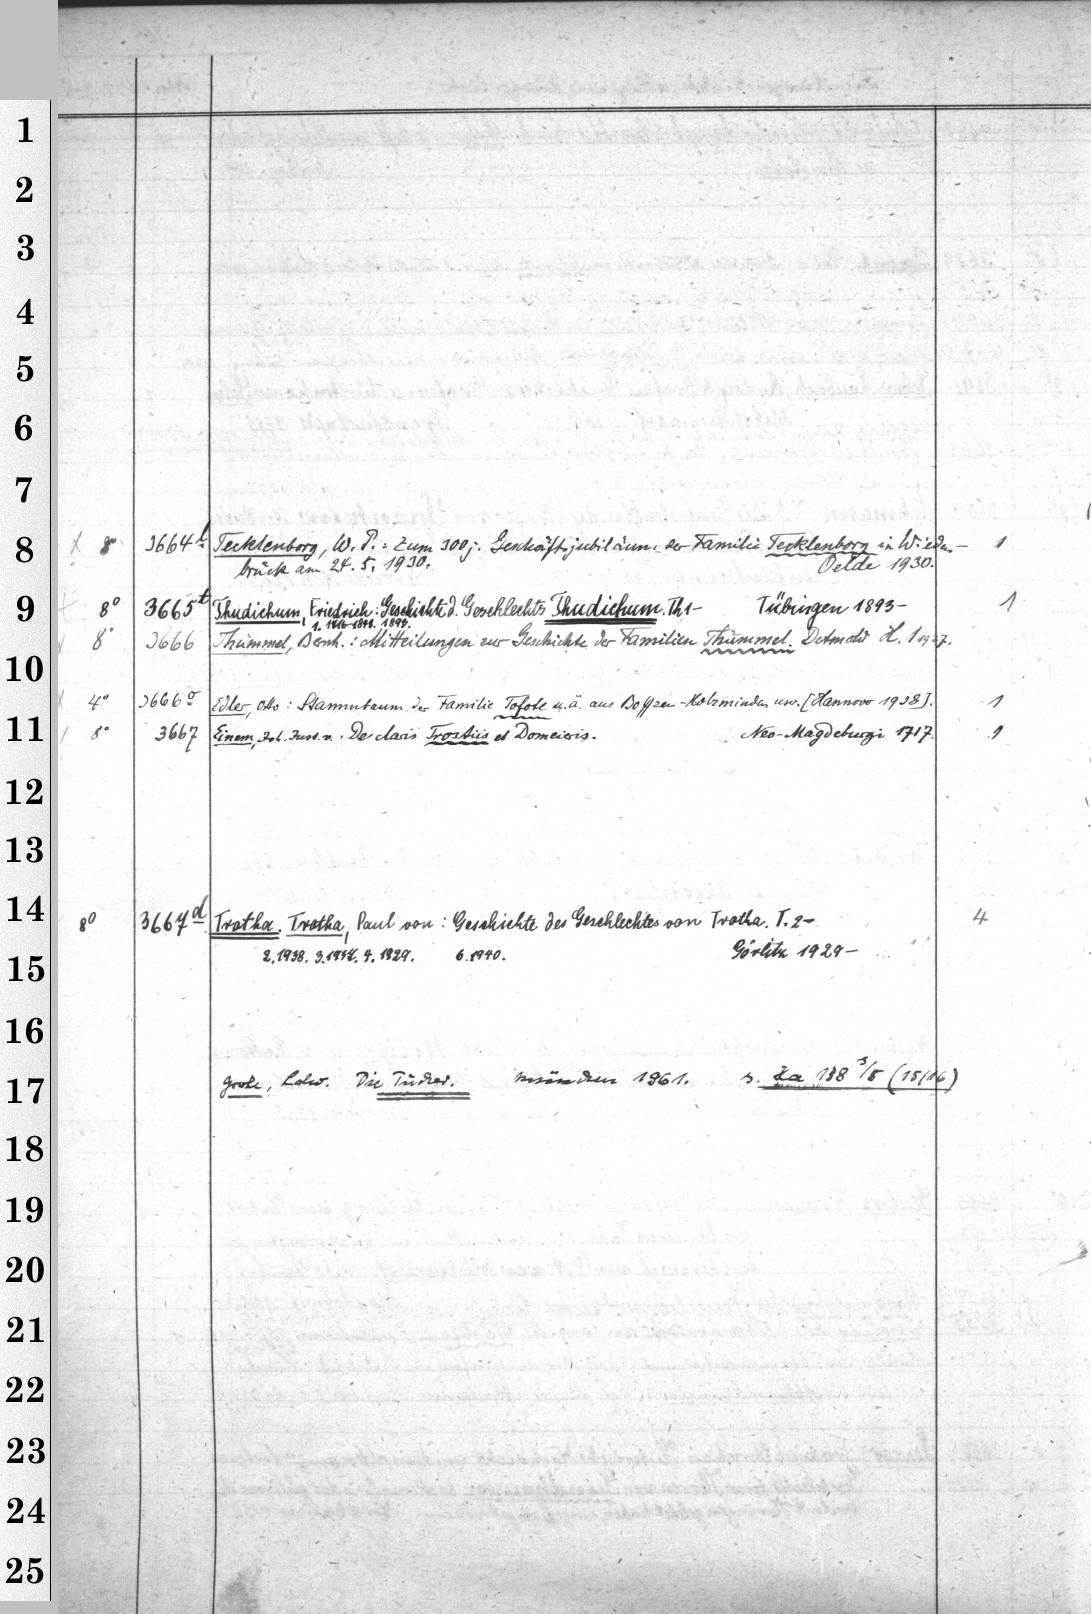 1
2
3
4
5
6
7
8 8° 3664 Tecklenborg, W. P.: Zum 300j. Geschäftsjubiläum der Familie Tecklenborg in Wieden- 1
brück am 24. 5. 1930. Oelde 1930.
9 8° 3665t Thudichum, Friedrich: Geschichte d. Geschlechts Thudichum. Th 1- Tübingen 1893- 1
8° 3666 Thümmel, Bernh.: Mitteilungen zur Geschichte der Familien Thümmel. Detmold H. 1 1927.
10
4° 3666 Edler, Otto: Stammbaum der Familie Tofote u.ä. aus Boffzen-Holzminden usw. [Hannover 1938]. 1
11 8° 3667 Einem, Joh. Just. v.: De claris Trostiis et Domeieris. Neo-Magdeburgi 1717. 1
12
13
14 8° 3667d Trotha. Trotha, Paul von: Geschichte des Geschlechtes von Trotha. T. 2- 4
15 4. 1929. 6. 1940. Görlitz 1929-
16
17 Grote, Ludw. Die Tucher. München 1961. s. Za 138 3/5 (15/16)
18
19
20
21
22
23
24
25